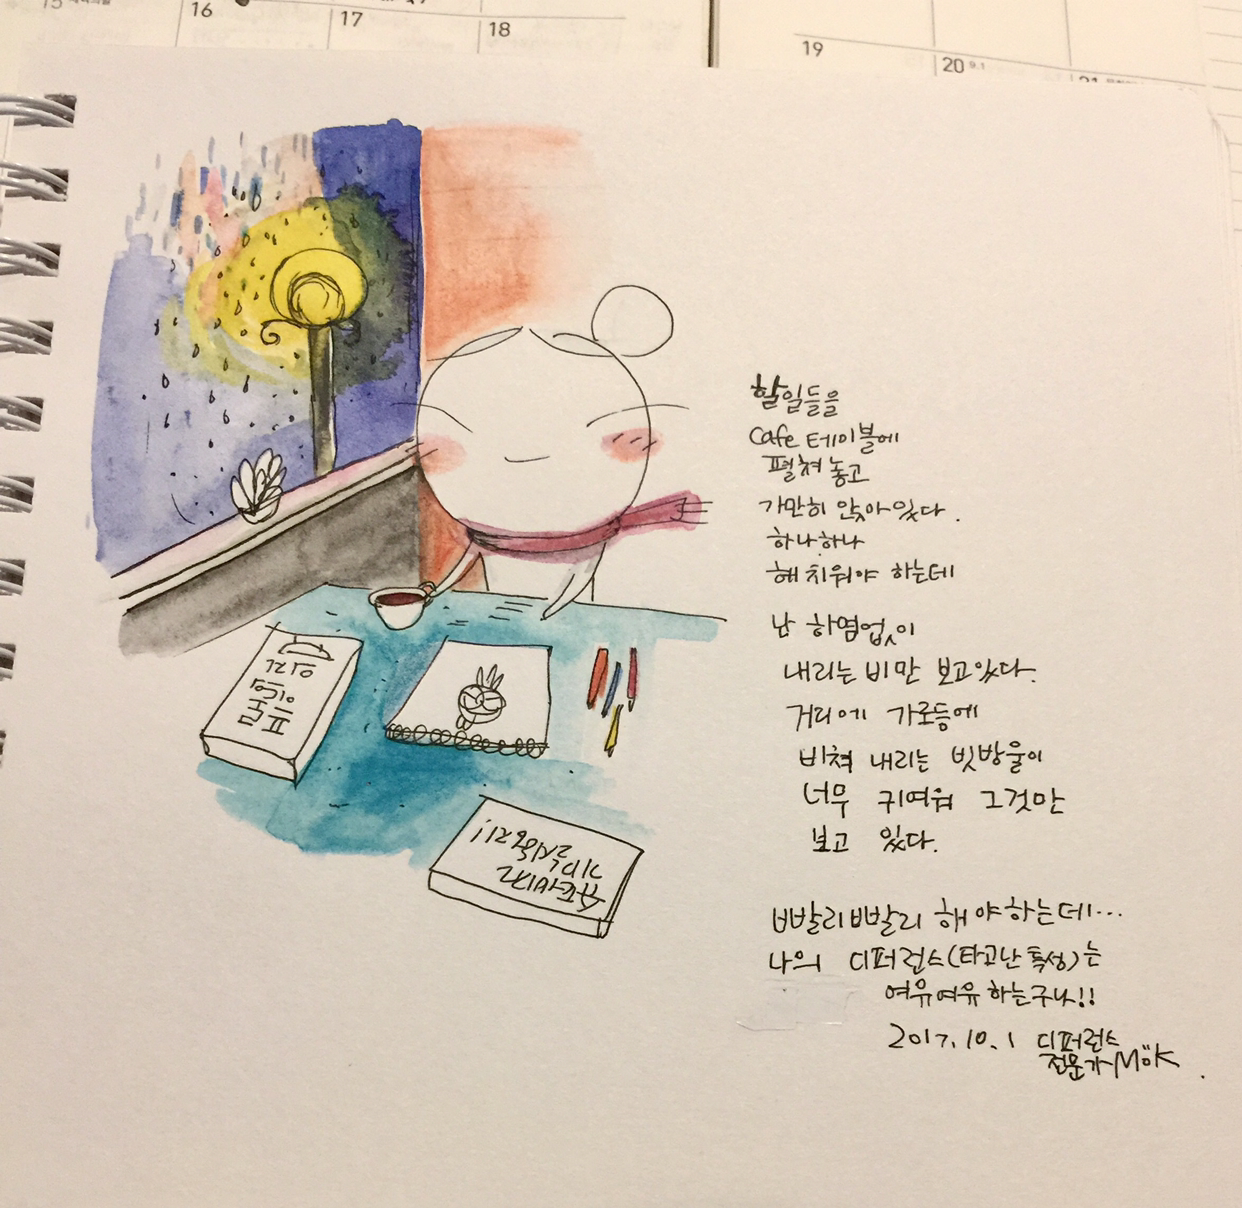 15
16
17
18
19
20 9.1
21
할일들을
Cafe 테이블에
펼쳐 놓고
가만히 앉아있다.
하나하나
해치워야 하는데
난 하염없이
내리는 비만 보고있다.
거리에 가로등에
비쳐 내리는 빗방울이
너무 귀여워 그것만
보고 있다.
빠발리빠발리 해야하는데...
나의 디퍼런스(타고난 특성)는
여유여유 하는구나!!
2017.10.1 디퍼런스
전문가 MöK